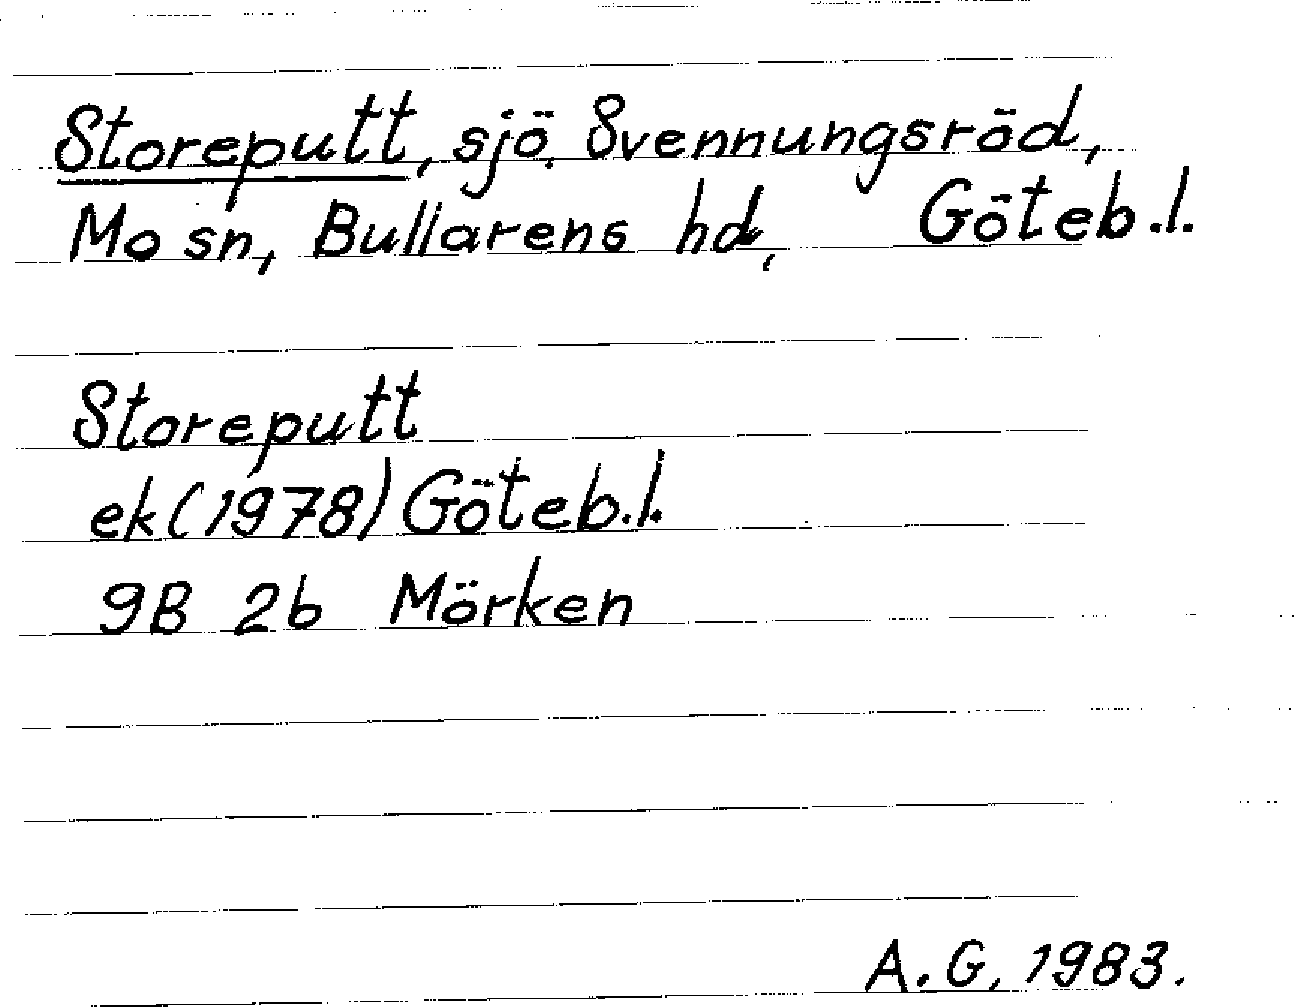 Storeputt, sjö. Svennungsröd,
Mo sn, Bullarens hd, Göteb.l.
Storeputt
ek (1978) Göteb.l.
9B 2b Mörken
A.G. 1983.